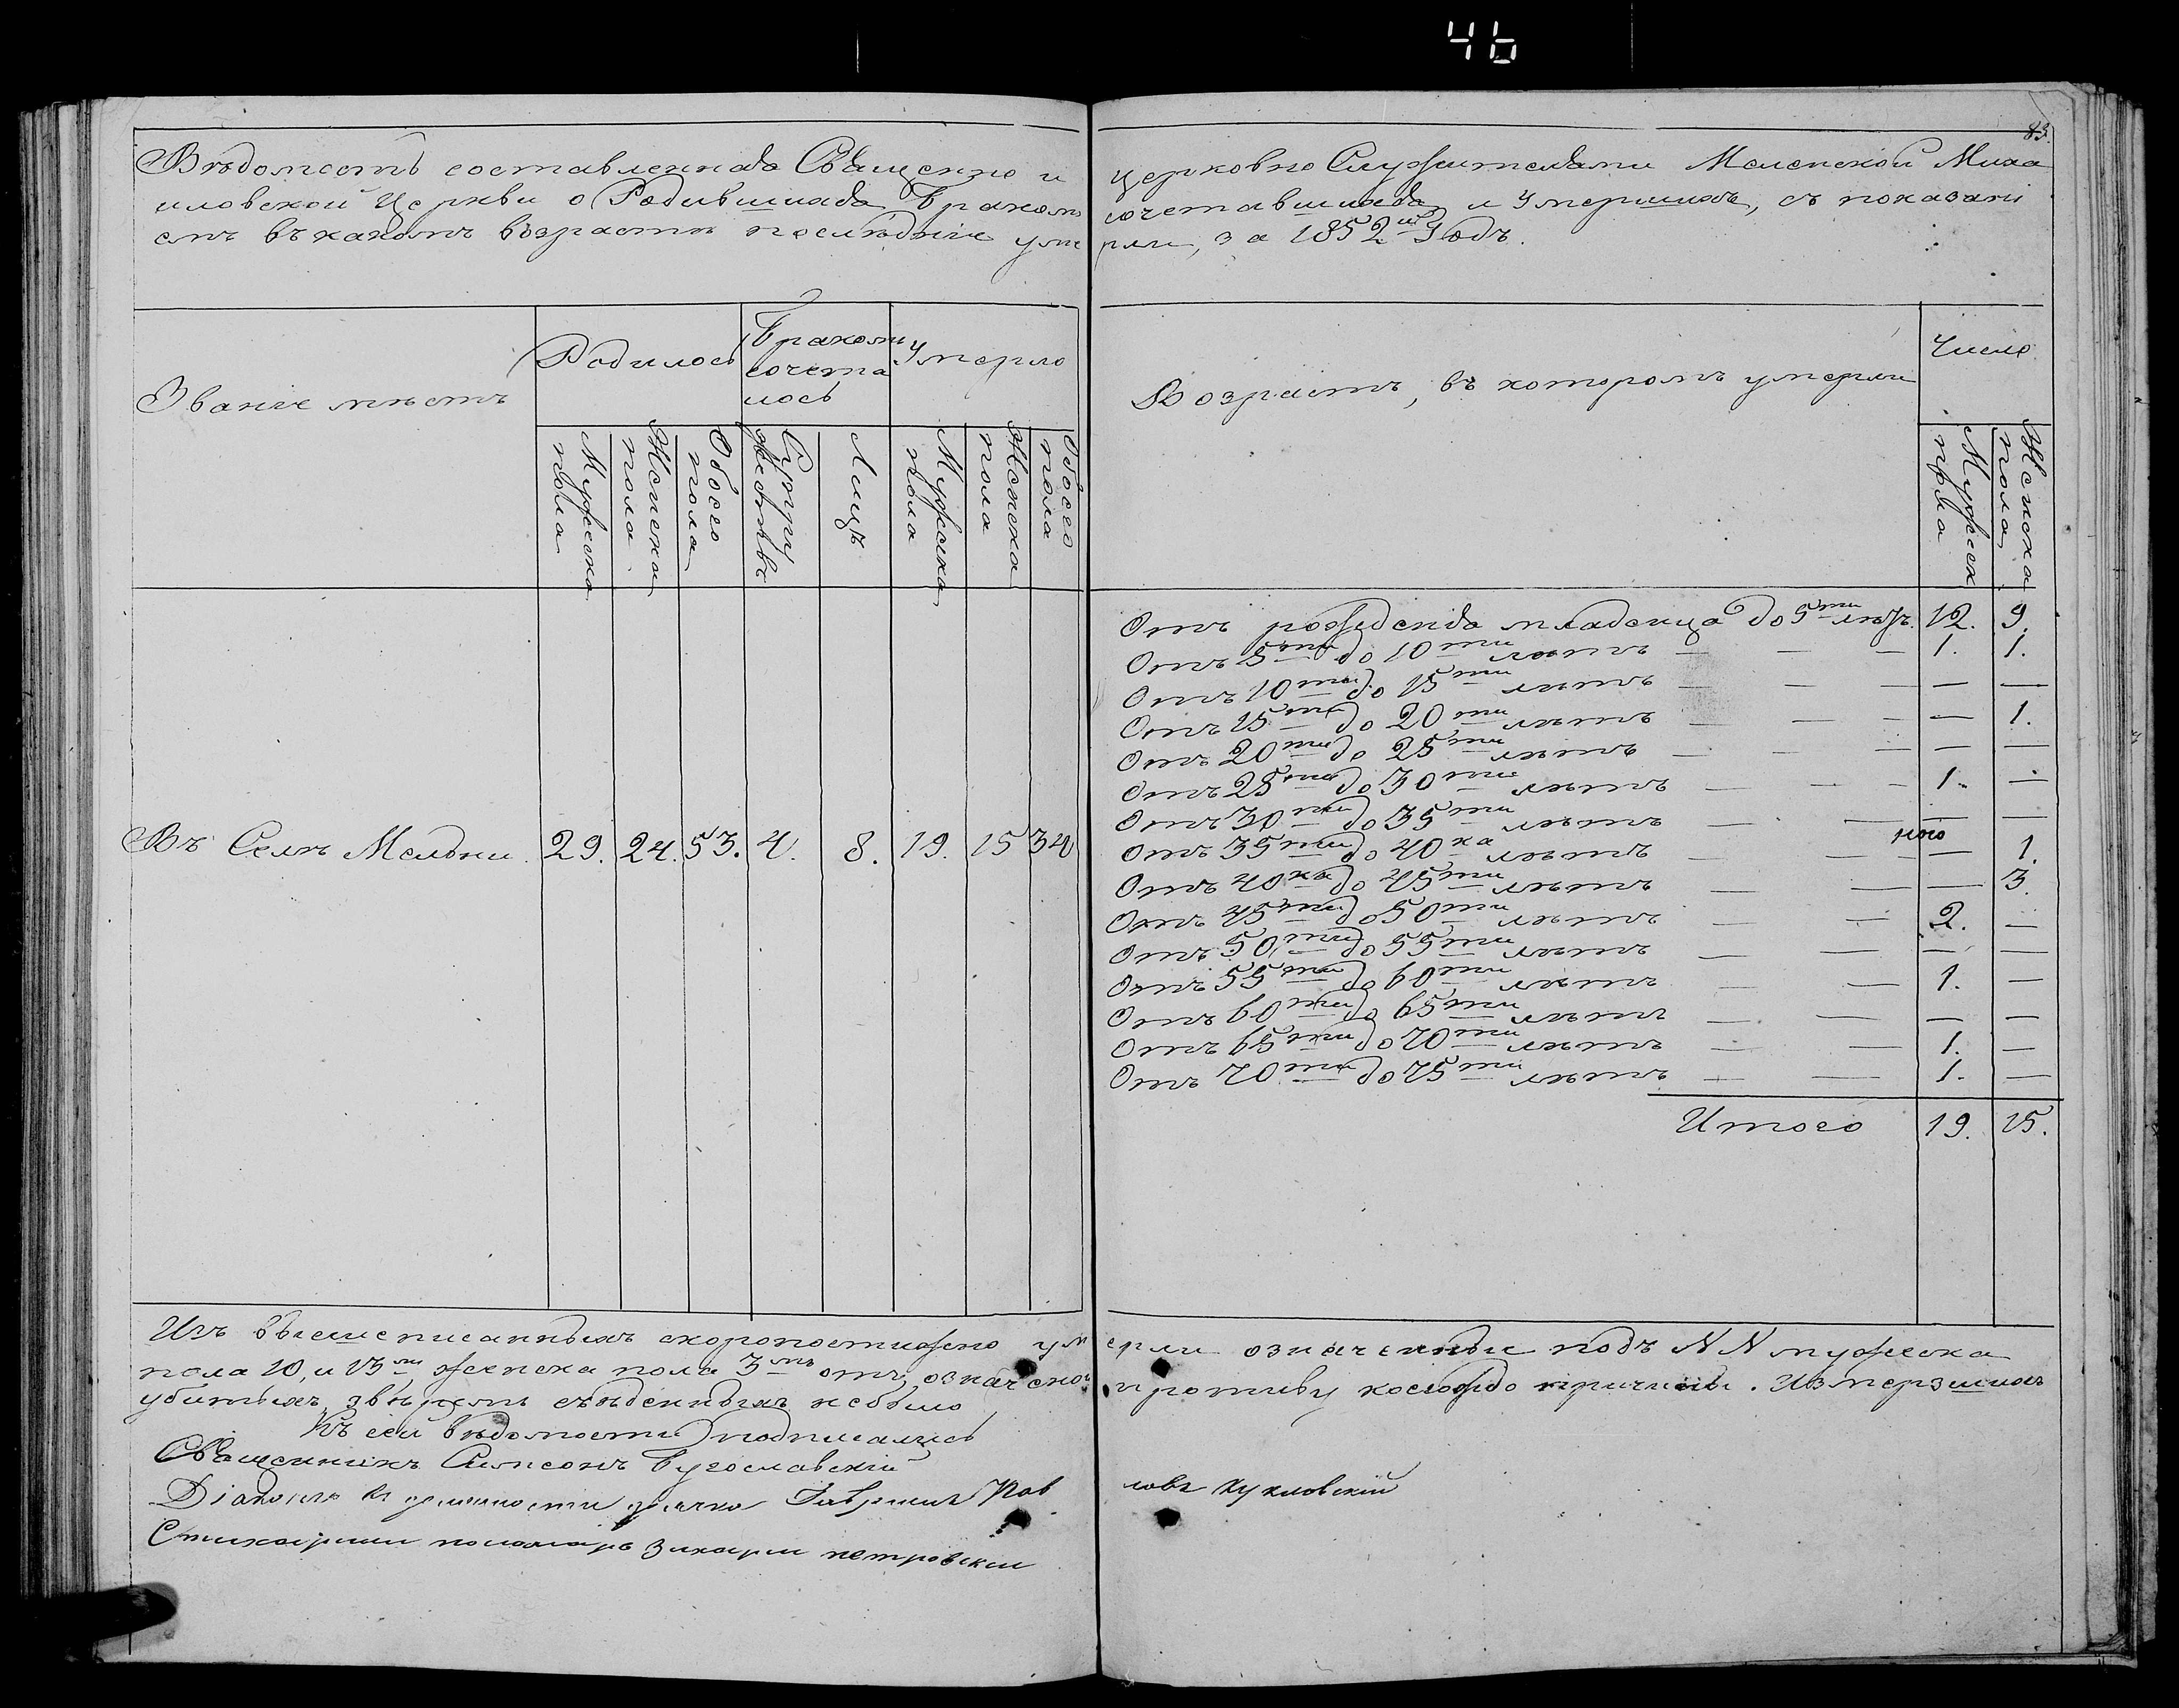 46
83.
Вѣдомость составленная Священно и церковно Служителями Меленской Миха
иловской Церкви о Родившихся Бракомъ сочетавшихся и Умершихъ, съ показані
емъ въ какомъ возрастѣ послѣдніе умерли, за 1852й Годъ.
Званіе мѣстъ
Родилось
Бракомъ
сочета
лось
Умерло
Возрастъ, въ которомъ умерли
Число
Мужеска пола
Женска пола
Обоего пола
Супружествъ
Лицъ
Мужеска пола
Женска пола
Обоего пола
Мужеск пола
Женска пола
Отъ рожденія младенца до 5ти лѣтъ. 12. 9.
Отъ 5ти до 10ти лѣтъ — — — 1. 1.
Отъ 10ти до 15ти лѣтъ — — — — —
Отъ 15ти до 20ти лѣтъ — — — — 1.
Отъ 20ти до 25ти лѣтъ — — — — —
Отъ 25ти до 30ти лѣтъ — — — 1. —
Отъ 30ти до 35ти лѣтъ — — — —
Отъ 35ти до 40ка лѣтъ — — — — 1.
Отъ 40ка до 45ти лѣтъ — — — 3.
Отъ 45ти до 50ти лѣтъ — — 2. —
Отъ 50ти до 55ти лѣтъ — — — —
Отъ 55ти до 60ти лѣтъ — — 1. —
Отъ 60ти до 65ти лѣтъ — — — —
Отъ 65ти до 70ти лѣтъ — — 1. —
Отъ 70ти до 75ти лѣтъ — — 1. —
Въ Селѣ 29. 24. 53. 4. 8. 19. 15 34
Итого 19. 15.
Изъ вышеписанныхъ скоропостижно умерли означенныи подъ NN мужеска
пола 10, и 13м женска пола 3мъ отъ, означеной противу коегождо причины. Измерзшихъ
убитыхъ, звѣремъ съѣденныхъ небыло
Къ сей вѣдомости подписались
Священникъ Симеонъ Бугославскій
Діаконъ въ должности дьячка Гавриилъ Павловъ Кукловскій
Стихарныи пономарь Захаріи петровскіи